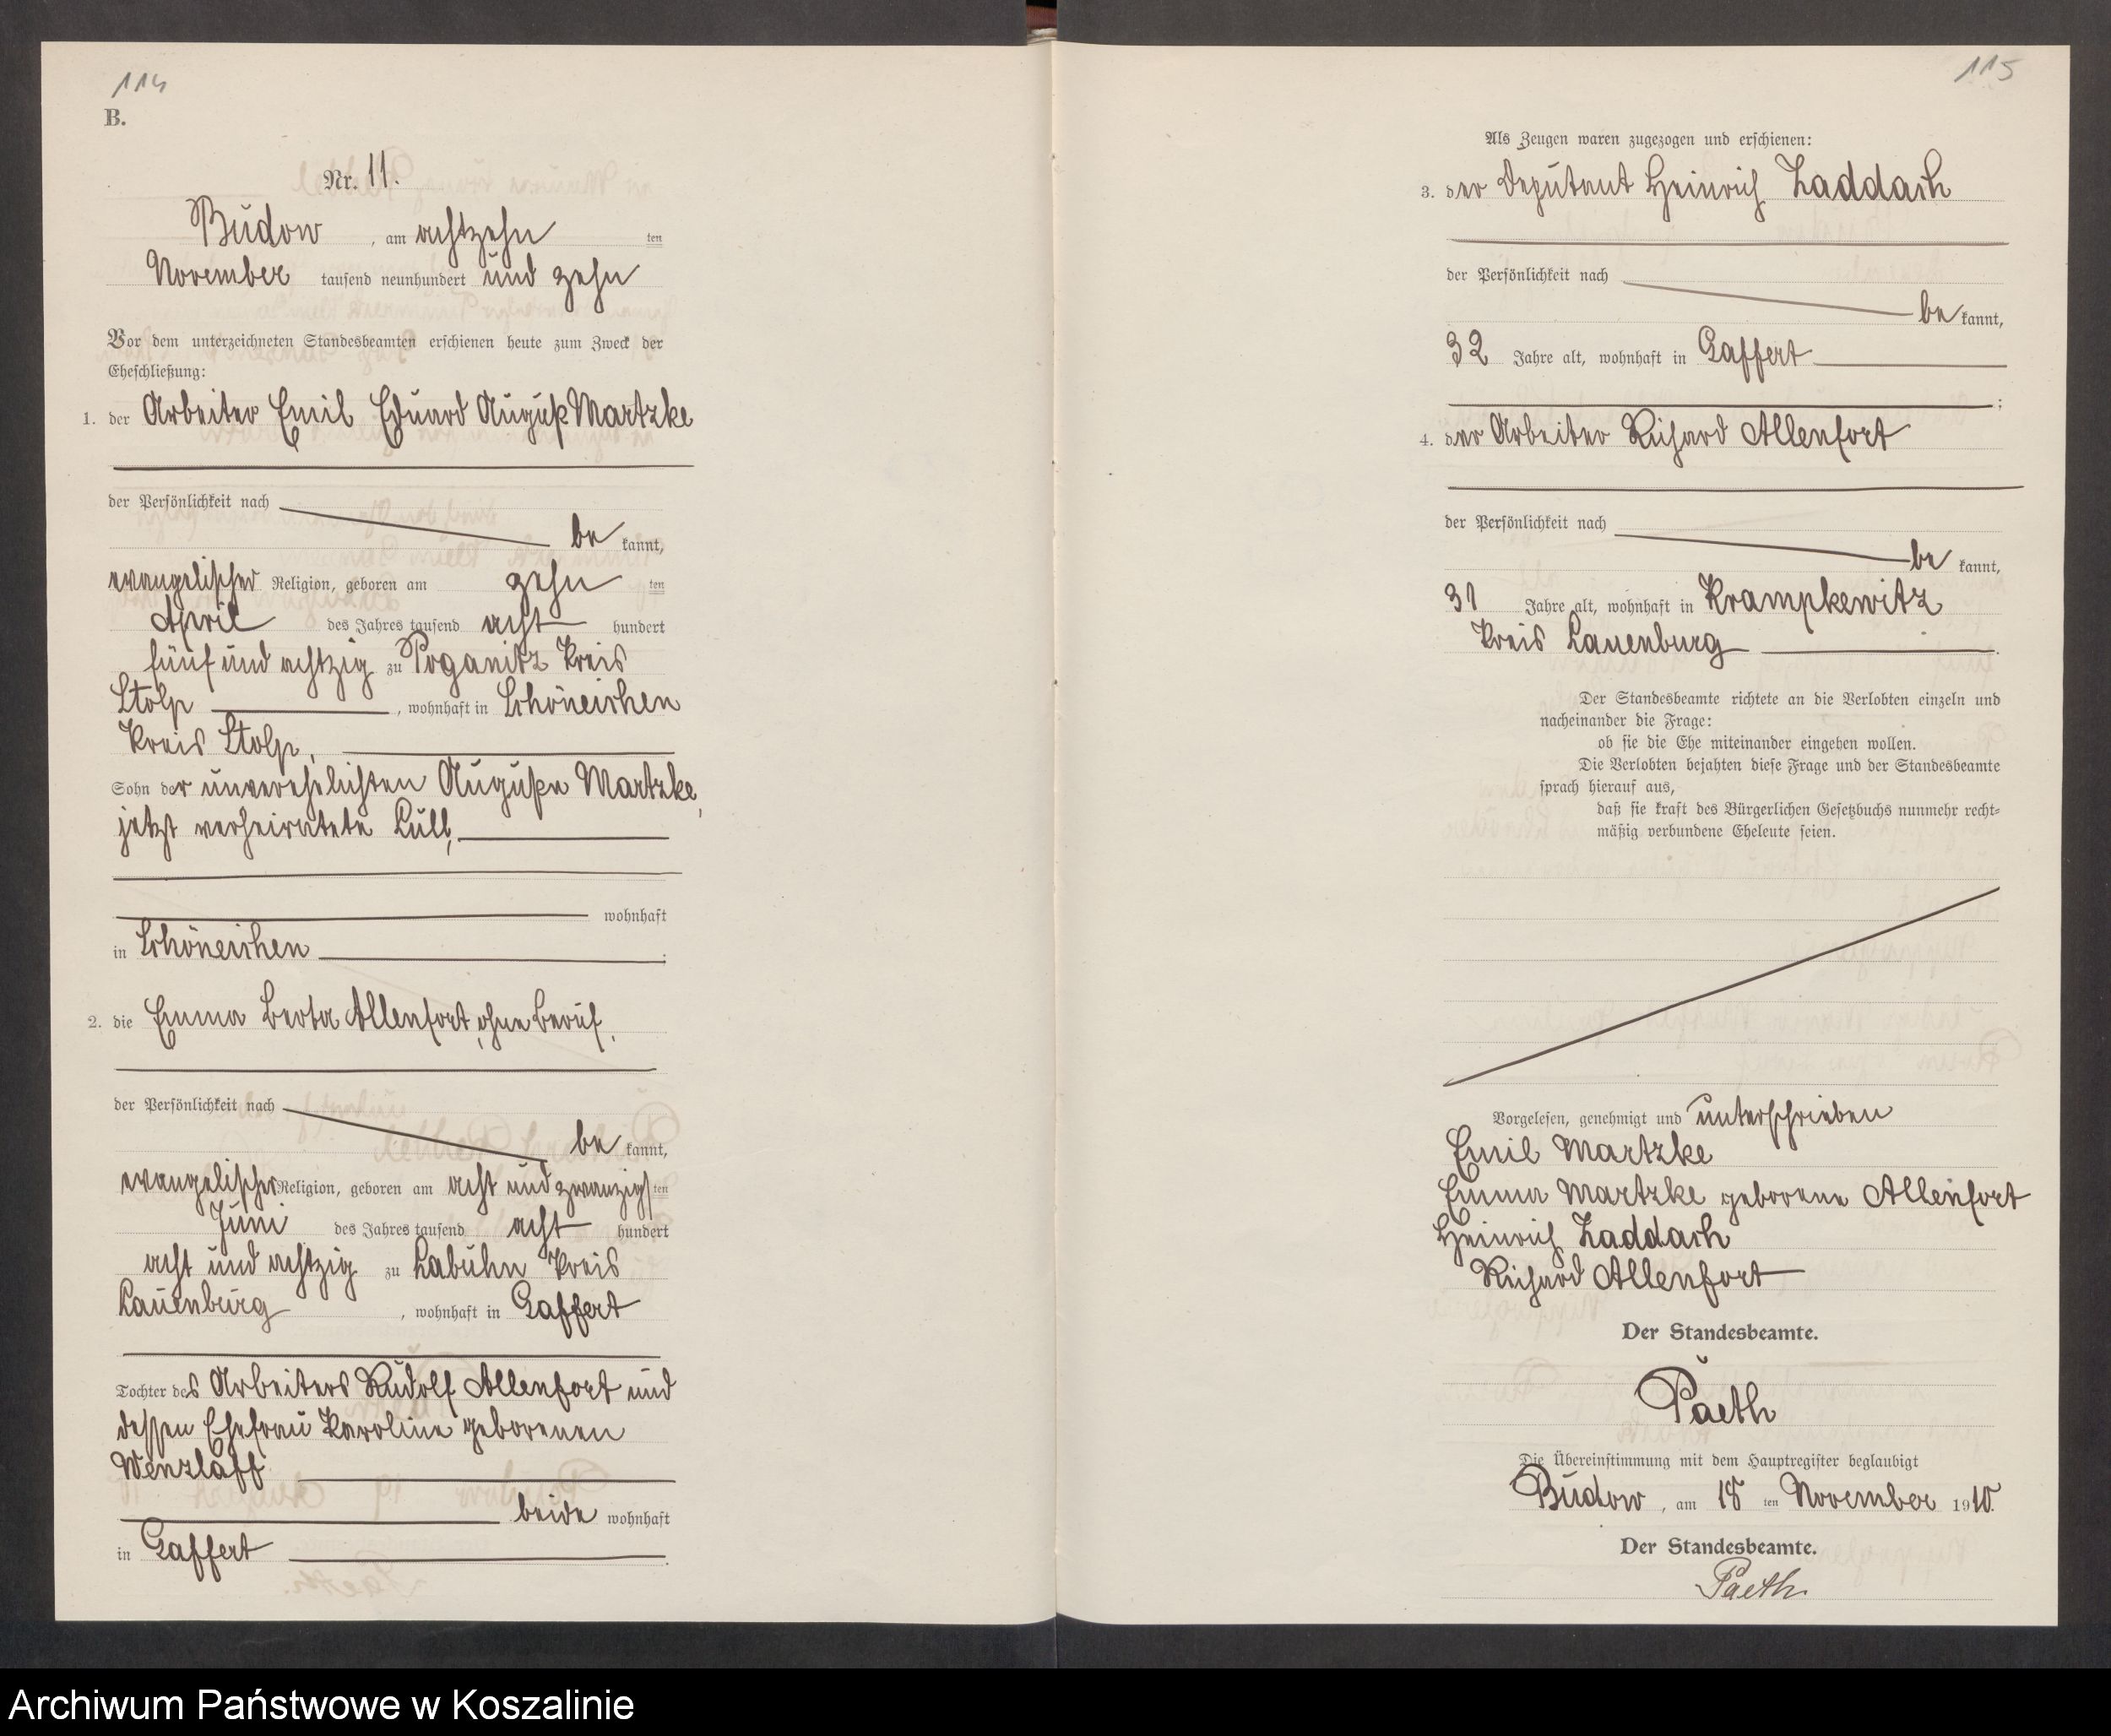 114
B.
Nr. 11.
Budow, am achtzehn ten
November tausend neunhundert und zehn
Vor dem unterzeichneten Standesbeamten erschienen heute zum Zweck der
Eheschließung:
1. der Arbeiter Emil Eduard August Martzke
der Persönlichkeit nach
be kannt,
evangelischer Religion, geboren am zehn ten
April des Jahres tausend acht hundert
fünf und achtzig zu Poganitz Kreis
Stolp, wohnhaft in Schöneichen
Kreis Stolp,
Sohn der unverehelichten Auguste Martzke,
jetzt verheiratete Lüll,
wohnhaft
in Schöneichen.
2. die Emma Berta Allenfort, ohne Beruf,
der Persönlichkeit nach
be kannt,
evangelischer Religion, geboren am acht und zwanzigsten
Juni des Jahres tausend acht hundert
acht und achtzig zu Labuhn Kreis
Lauenburg, wohnhaft in Gaffert
Tochter des Arbeiters Rudolf Allenfort und
dessen Ehefrau Karoline geborenen
Wenzlaff
beide wohnhaft
in Gaffert.
115
Als Zeugen waren zugezogen und erschienen:
3. der Deputant Heinrich Zaddach
der Persönlichkeit nach
be kannt,
32 Jahre alt, wohnhaft in Gaffert
;
4. der Arbeiter Richard Allenfort
der Persönlichkeit nach
be kannt,
31 Jahre alt, wohnhaft in Krampkewitz
Kreis Lauenburg.
Der Standesbeamte richtete an die Verlobten einzeln und
nacheinander die Frage:
ob sie die Ehe miteinander eingehen wollen.
Die Verlobten bejahten diese Frage und der Standesbeamte
sprach hierauf aus,
daß sie kraft des Bürgerlichen Gesetzbuchs nunmehr recht-
mäßig verbundene Eheleute seien.
Vorgelesen, genehmigt und unterschrieben
Emil Martzke
Emma Martzke geborene Allenfort
Heinrich Zaddach
Richard Allenfort
Der Standesbeamte.
Paeth
Die Übereinstimmung mit dem Hauptregister beglaubigt
Budow, am 18 ten November 1910.
Der Standesbeamte.
Paeth
Archiwum Państwowe w Koszalinie